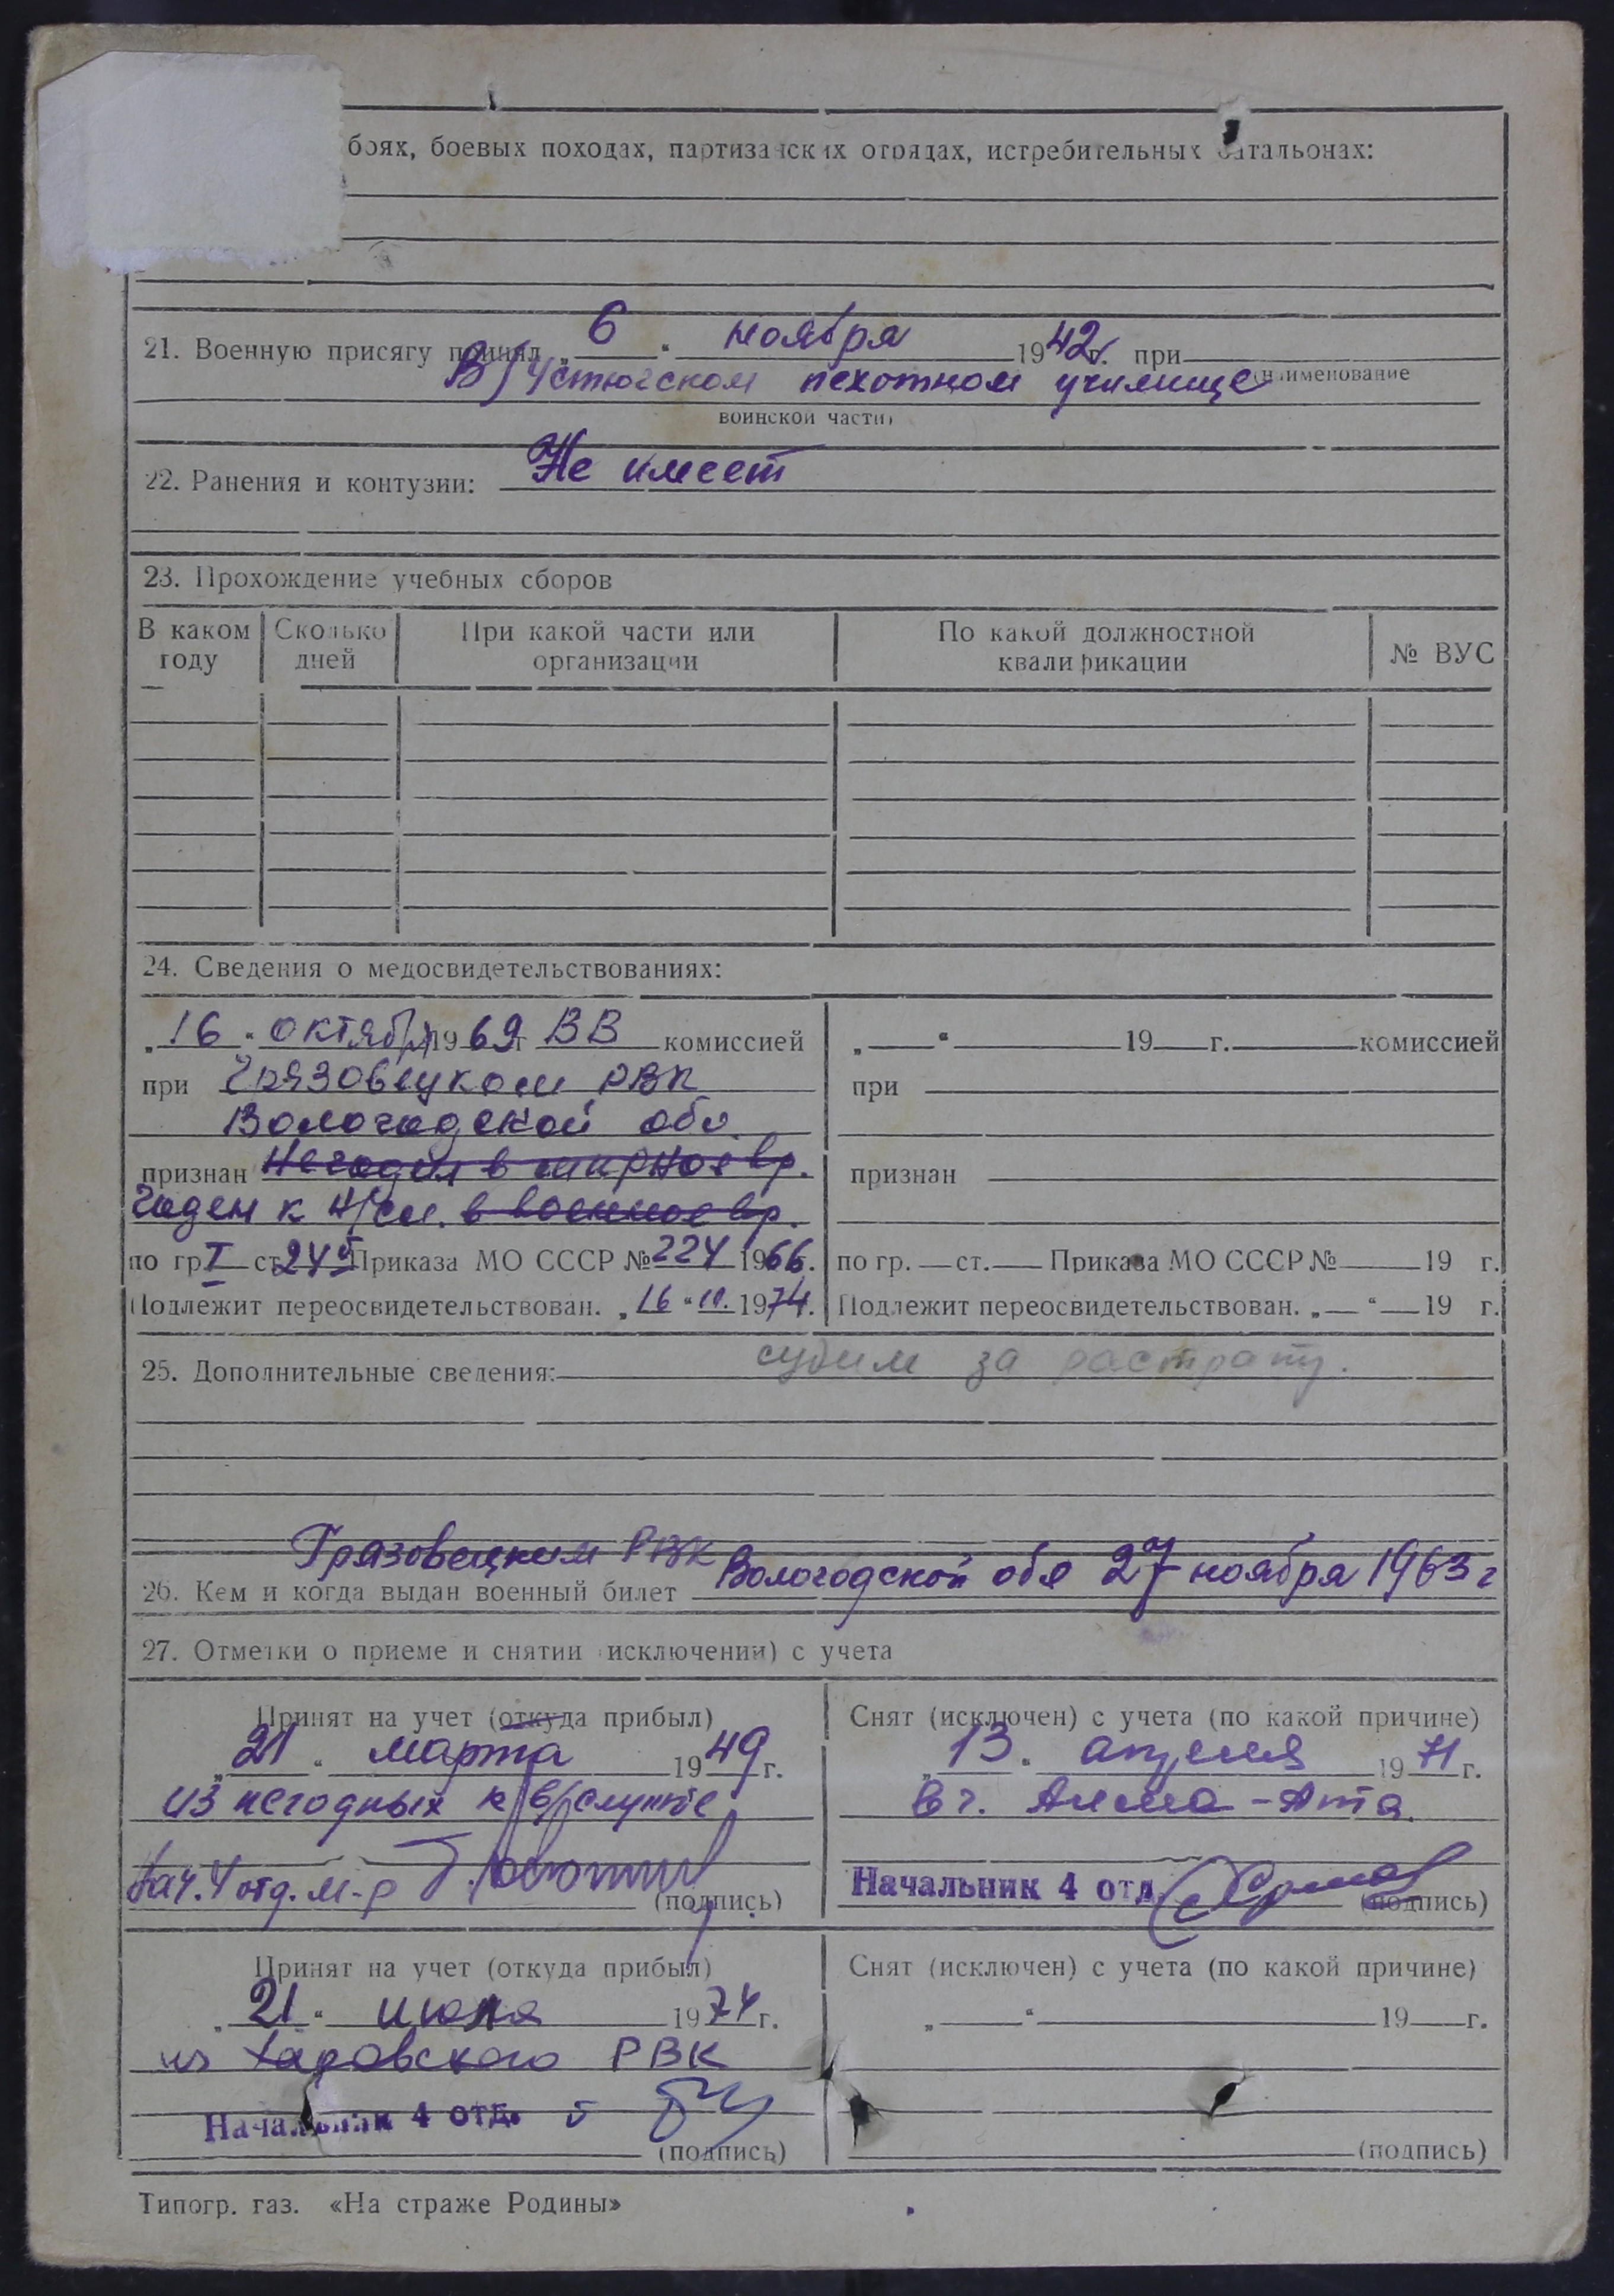 боях, боевых походах, партизанских отрядах, истребительных батальонах:
21. Военную присягу принял „ 6 “ ноября 1942 г. при
В/Устюгском пехотном училище (наименование
воинской части)
22. Ранения и контузии: Не имеет
23. Прохождение учебных сборов
В каком году Сколько дней При какой части или организации По какой должностной квалификации № ВУС
24. Сведения о медосвидетельствованиях:
„16“ октября 1969 г ВВ комиссией
при Грязовецком РВК
Вологодской обл.
признан Негоден в мирное вр.
Годен к н/сл. в военное вр.
по гр. I ст. 24 б Приказа МО СССР № 224 1966.
Подлежит переосвидетельствован. „16“ 10. 1974.
„ “ 19 г. комиссией
при
признан
по гр. ст. Приказа МО СССР № 19 г.
Подлежит переосвидетельствован. „ “ 19 г.
25. Дополнительные сведения: судим за растрату.
Грязовецким РВК
26. Кем и когда выдан военный билет Вологодской обл 27 ноября 1963 г
27. Отметки о приеме и снятии (исключении) с учета
Принят на учет (откуда прибыл)
„21“ марта 1949 г.
из негодных к в/службе
Нач. 4 отд. м-р
(подпись)
Снят (исключен) с учета (по какой причине)
„13“ апреля 1971 г.
в г. Алма-Ата.
Начальник 4 отд.
(подпись)
Принят на учет (откуда прибыл)
„21“ июля 1974 г.
из Харовского РВК
Начальник 4 отд.
(подпись)
Снят (исключен) с учета (по какой причине)
„ “ 19 г.
(подпись)
Типогр. газ. «На страже Родины»